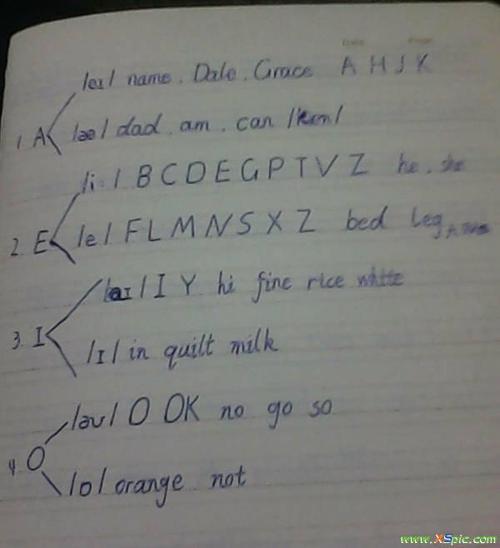 /eɪ/ name. Dale. Grace A H J K
1. A
/æ/ dad. am. can /kæn/
/i:/ B C D E G P T V Z he. she
2. E
/e/ F L M N S X Z bed leg
/aɪ/ I Y hi fine rice white
3. I
/ɪ/ in quilt milk
/əu/ O OK no go so
4. O
/ɔ/ orange not
www.XSpic.com